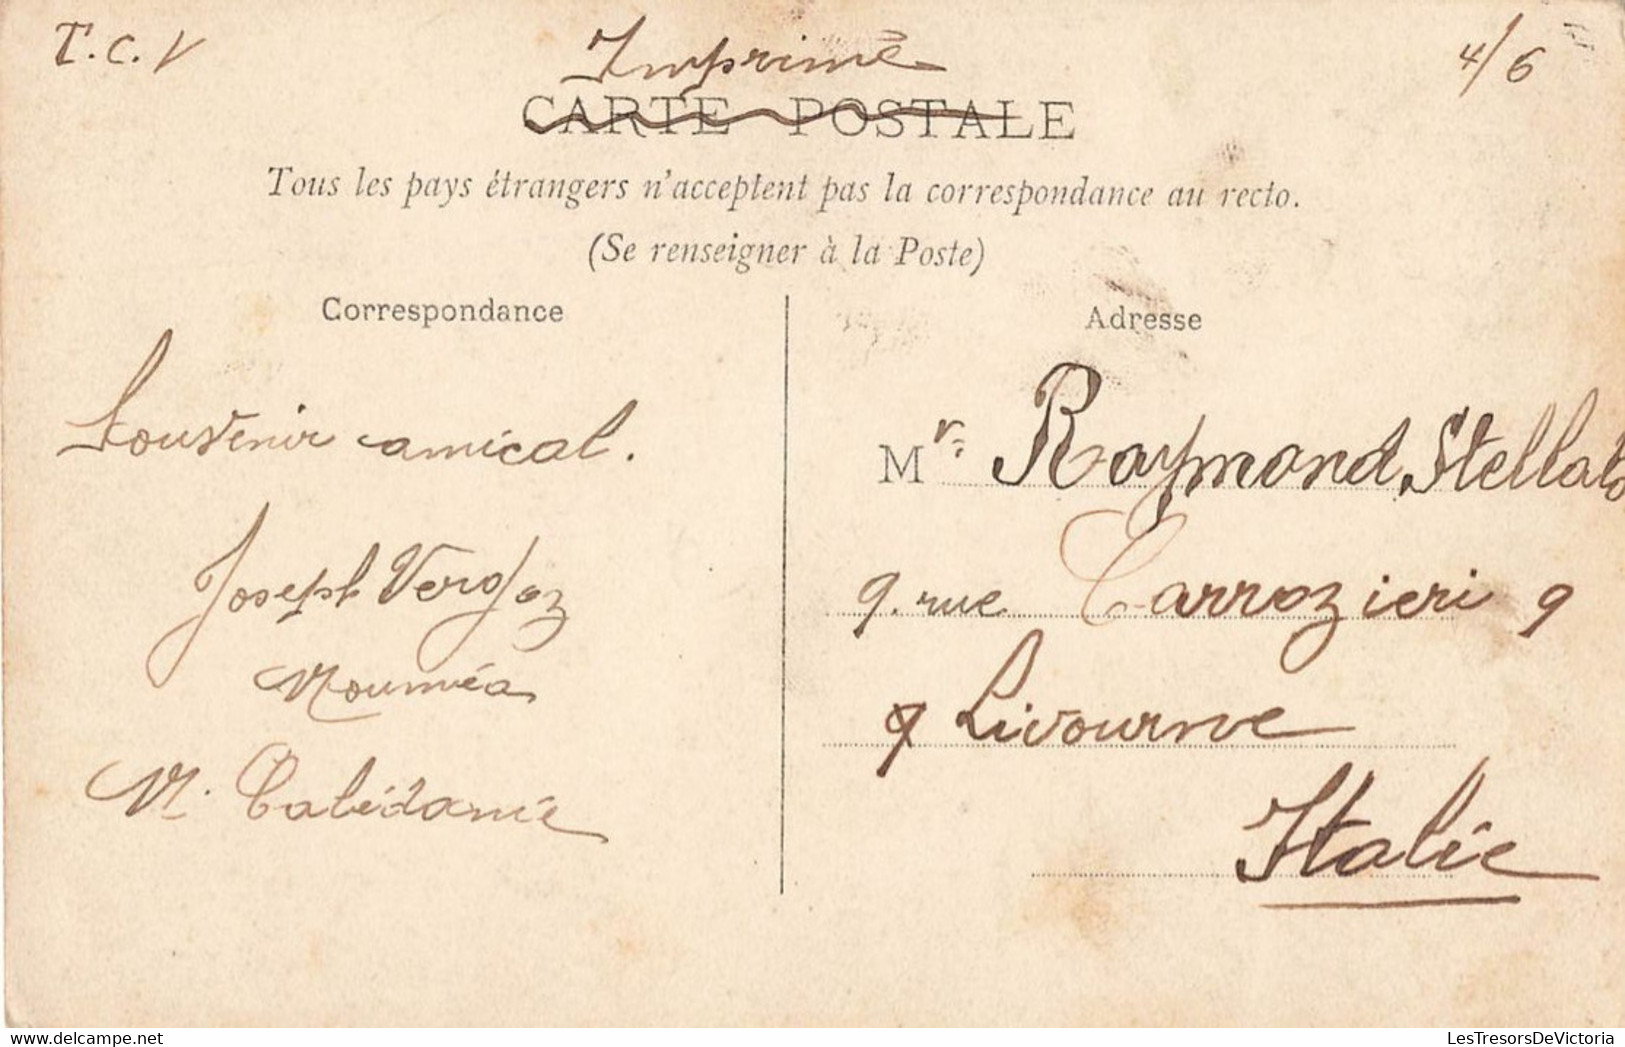 T.C.V
Imprimé
4/6
CARTE POSTALE
Tous les pays étrangers n'acceptent pas la correspondance au recto.
(Se renseigner à la Poste)
Correspondance
Souvenir amical.
Joseph Vergoz
Nouméa
N. Calédonie
Adresse
Mr. Raymond Stellato
9. rue Carrozieri 9
Livourne
Italie
LesTresorsDeVictoria